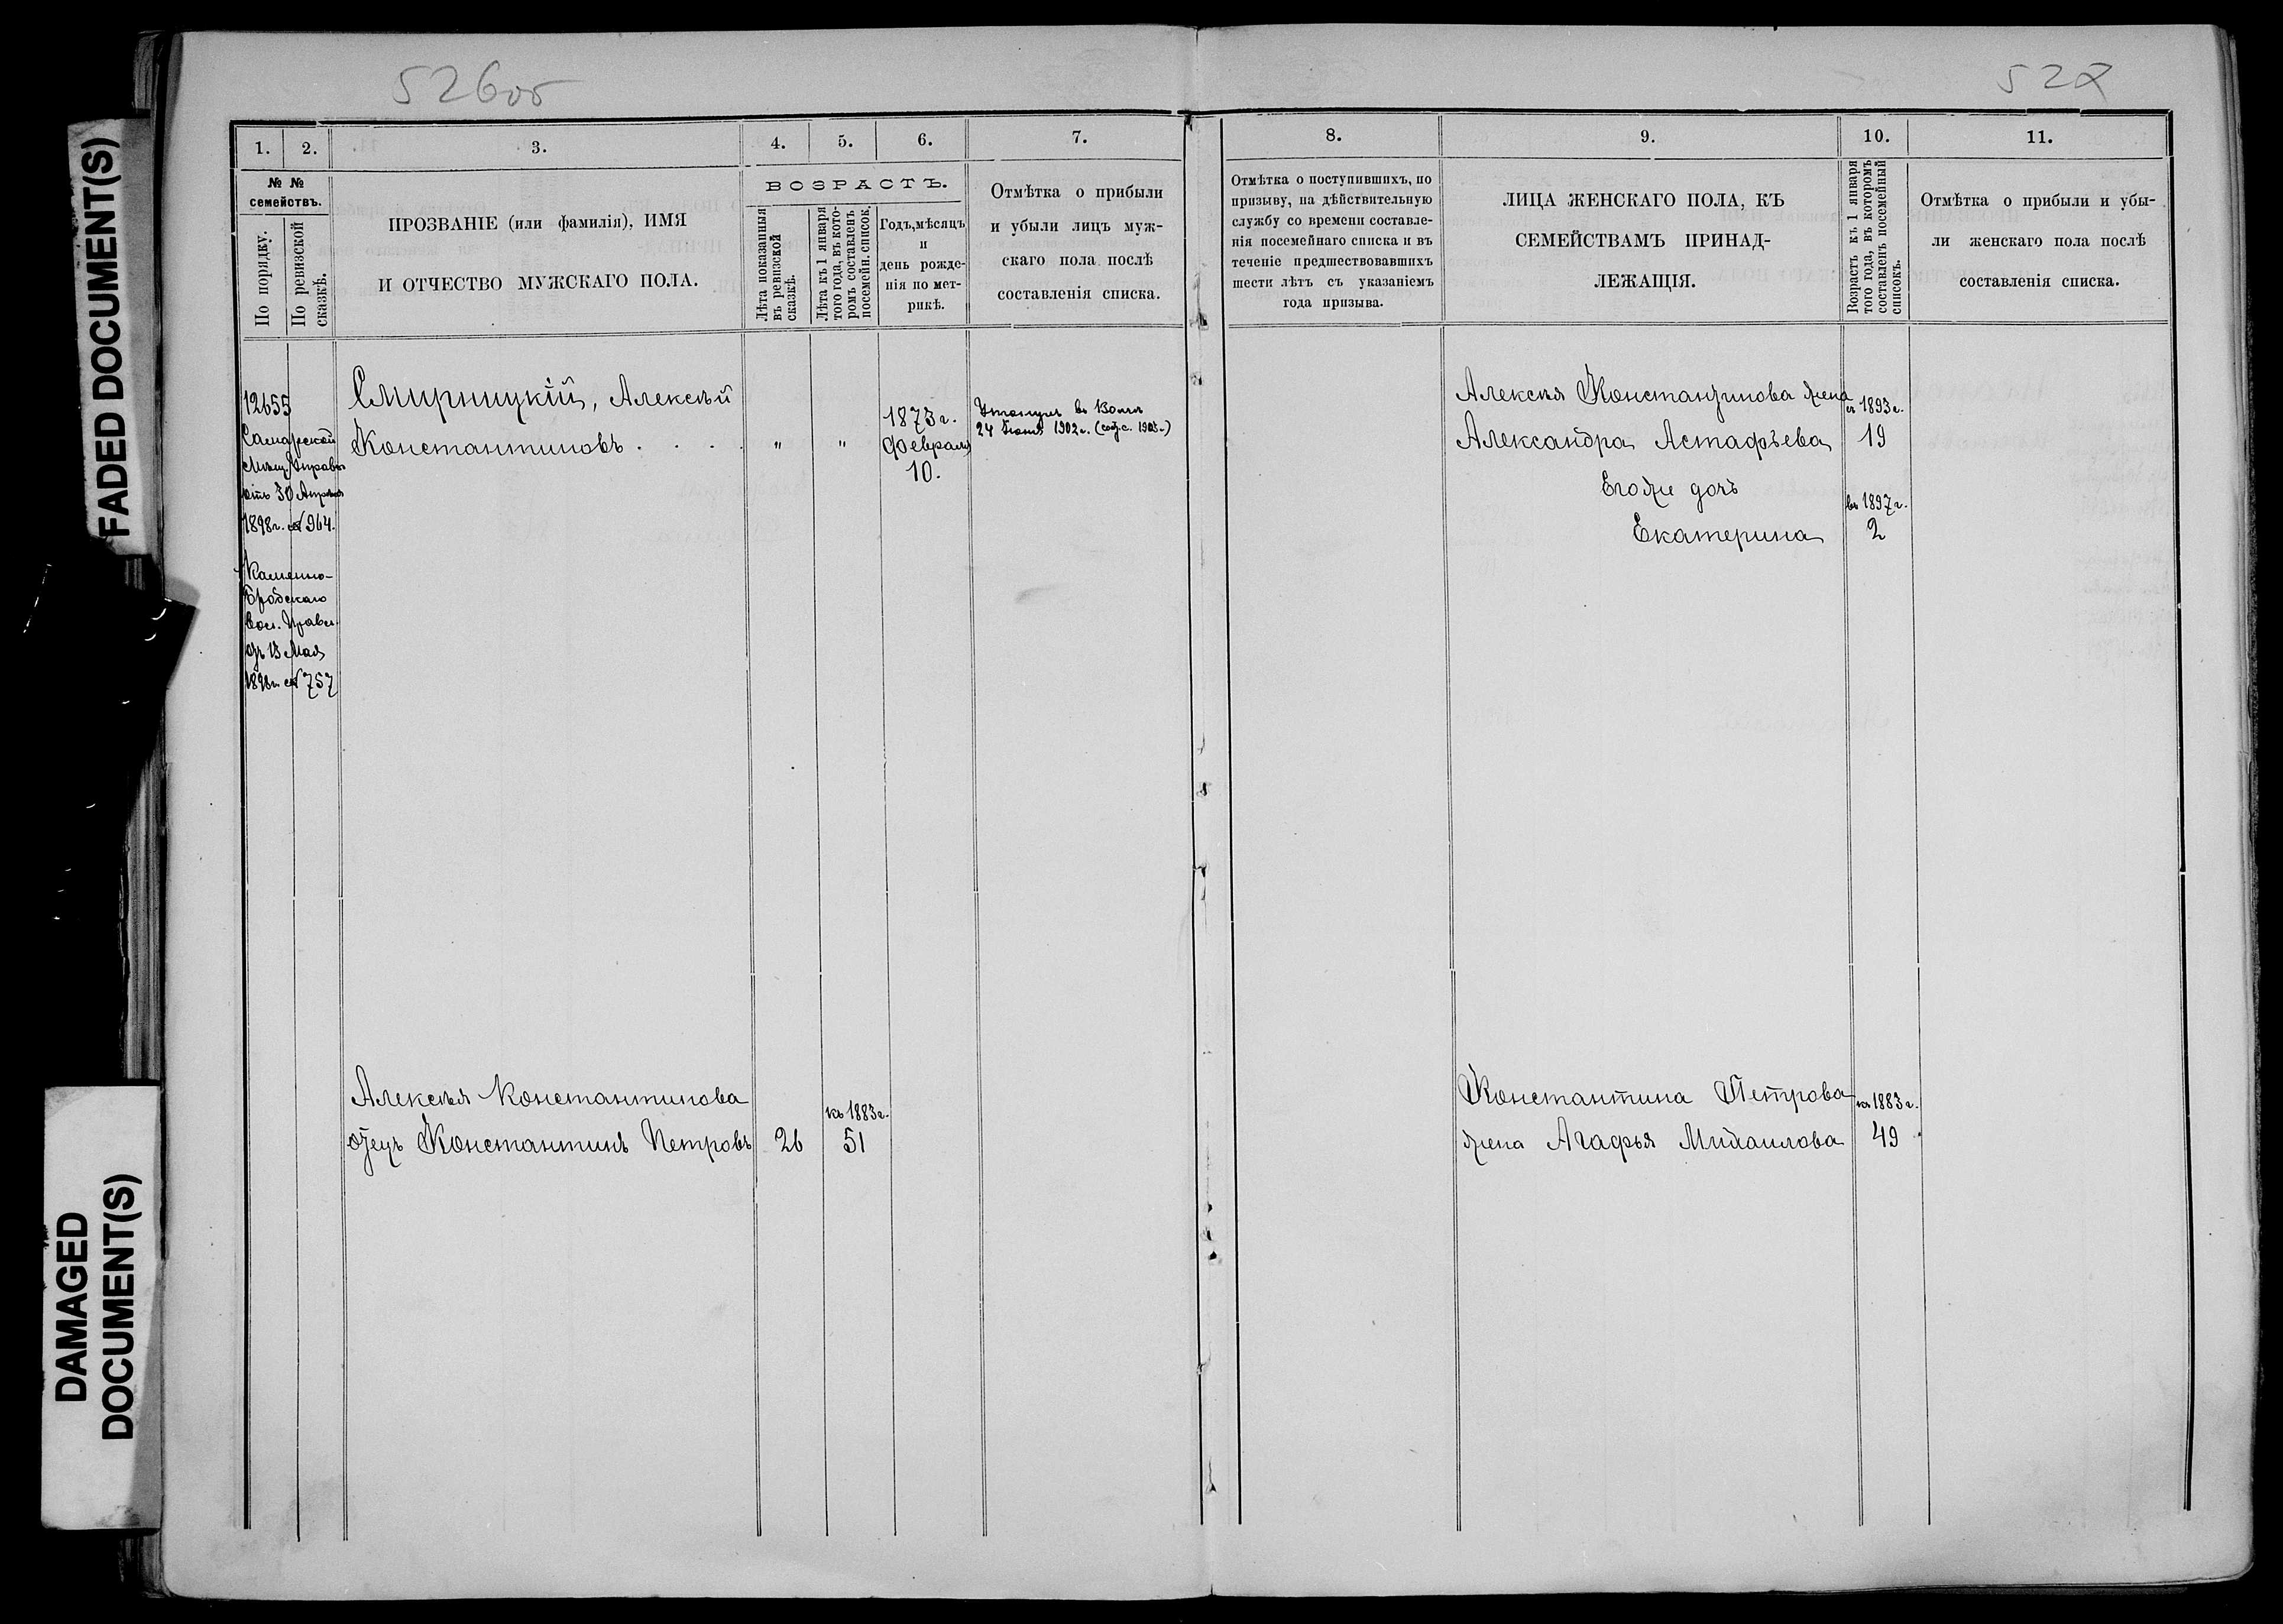 526об
527
FADED DOCUMENT(S)
DAMAGED
DOCUMENT(S)
1.
2.
3.
4.
5.
6.
7.
№ №
семействъ.
По порядку.
По ревизской
сказкѣ.
ПРОЗВАНІЕ (или фамилія), ИМЯ
И ОТЧЕСТВО МУЖСКАГО ПОЛА.
ВОЗРАСТЪ.
Лѣта показанныя
въ ревизской
сказкѣ.
Лѣта къ 1 января
того года, въ кото-
ромъ составленъ
посемейн. список.
Годъ, мѣсяцъ
и
день рожде-
нія по мет-
рикѣ.
Отмѣтка о прибыли
и убыли лицъ муж-
скаго пола послѣ
составленія списка.
12655
Самарской
Мѣщ. Управы
отъ 30 Апрѣля
1898г. № 964.
Каменно-
Бродскаго
Вол. Правл.
отъ 13 Мая
1898г. № 757
Смирницкій, Алексѣй
Константиновъ . . . .
"
"
1873г.
Февраля
10.
Утонулъ въ Волгѣ
24 Іюня 1902г. (
Алексѣя Константинова
отецъ Константинъ Петровъ
26
къ 1883г.
51
8.
9.
10.
11.
Отмѣтка о поступившихъ, по
призыву, на дѣйствительную
службу со времени составле-
нія посемейнаго списка и въ
теченіе предшествовавшихъ
шести лѣтъ съ указаніемъ
года призыва.
ЛИЦА ЖЕНСКАГО ПОЛА, КЪ
СЕМЕЙСТВАМЪ ПРИНАД-
ЛЕЖАЩІЯ.
Возрастъ къ 1 января
того года, въ которомъ
составленъ посемейный
списокъ.
Отмѣтка о прибыли и убы-
ли женскаго пола послѣ
составленія списка.
Алексѣя Константинова жена
Александра Астафьева
1893г.
19
Егоже дочь
Екатерина
въ 1897г.
2
Константина Петрова
жена Агафья Михаилова
къ 1883г.
49